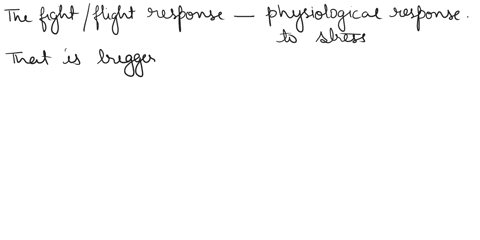 The fight/flight response — physiological response.
to stress
That is trigger